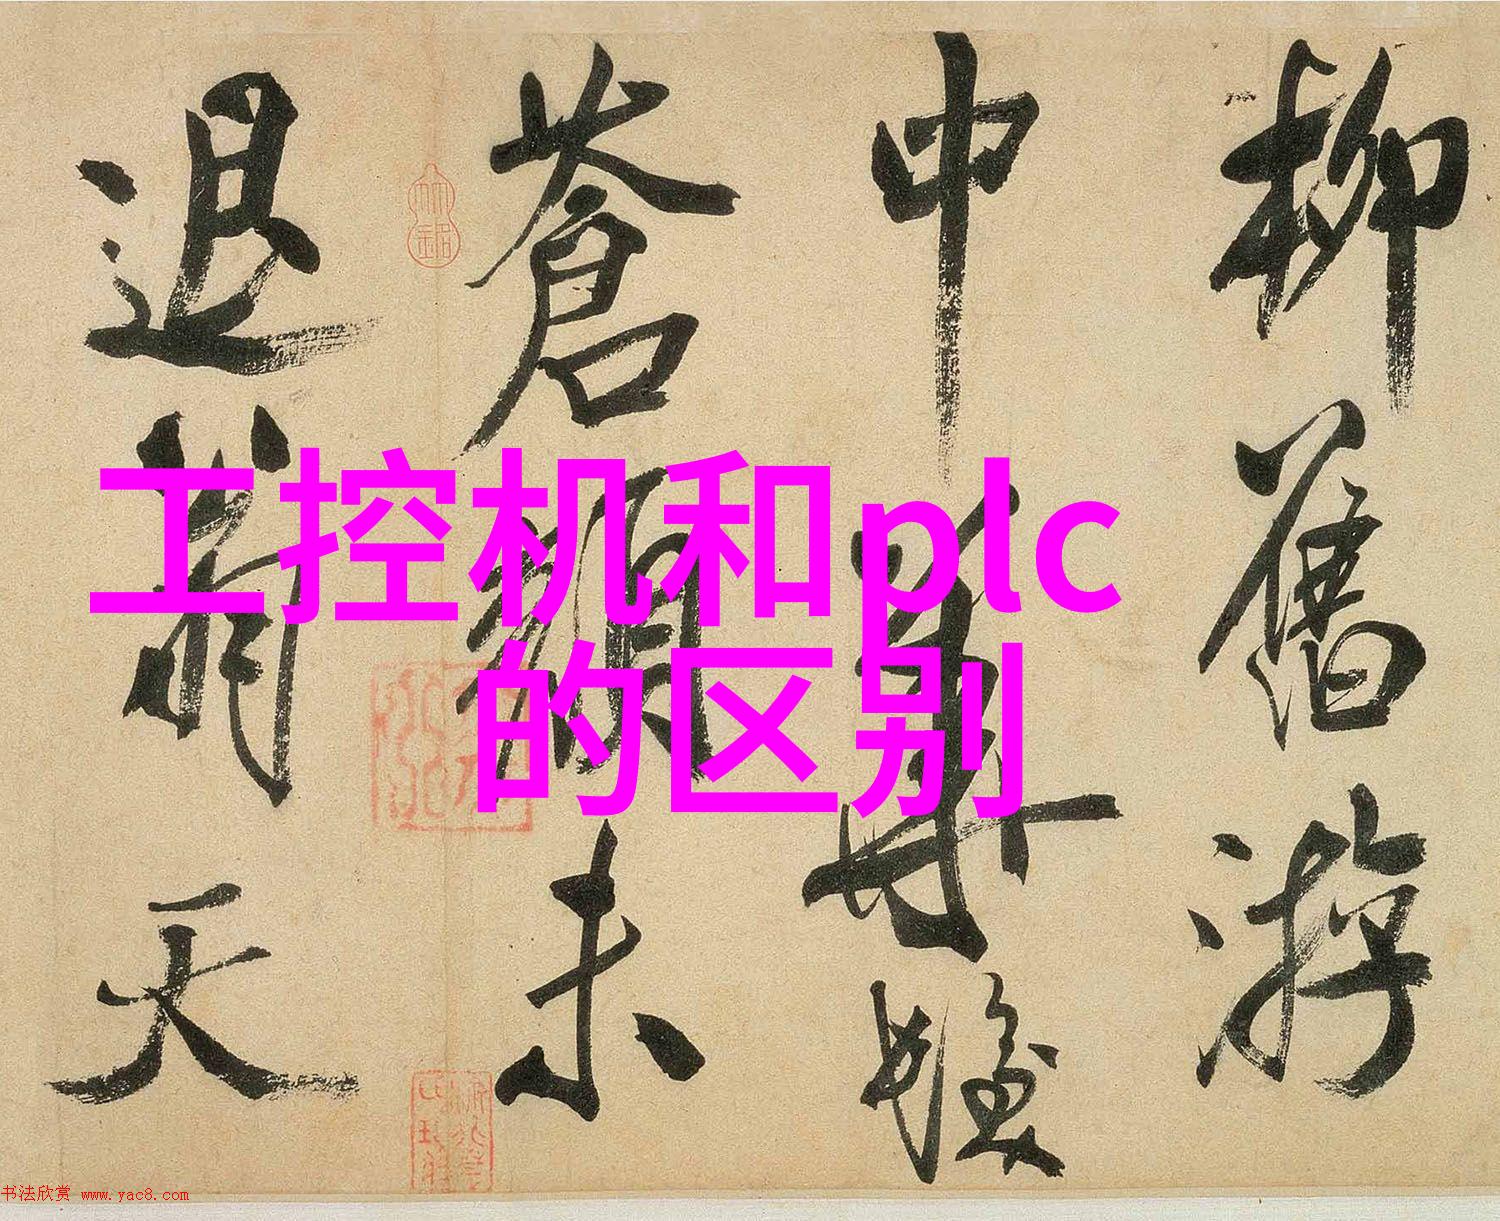 工控机和plc
的区别
柳舊游
中華
蒼顏未
退翁天
书法欣赏 www.yac8.com